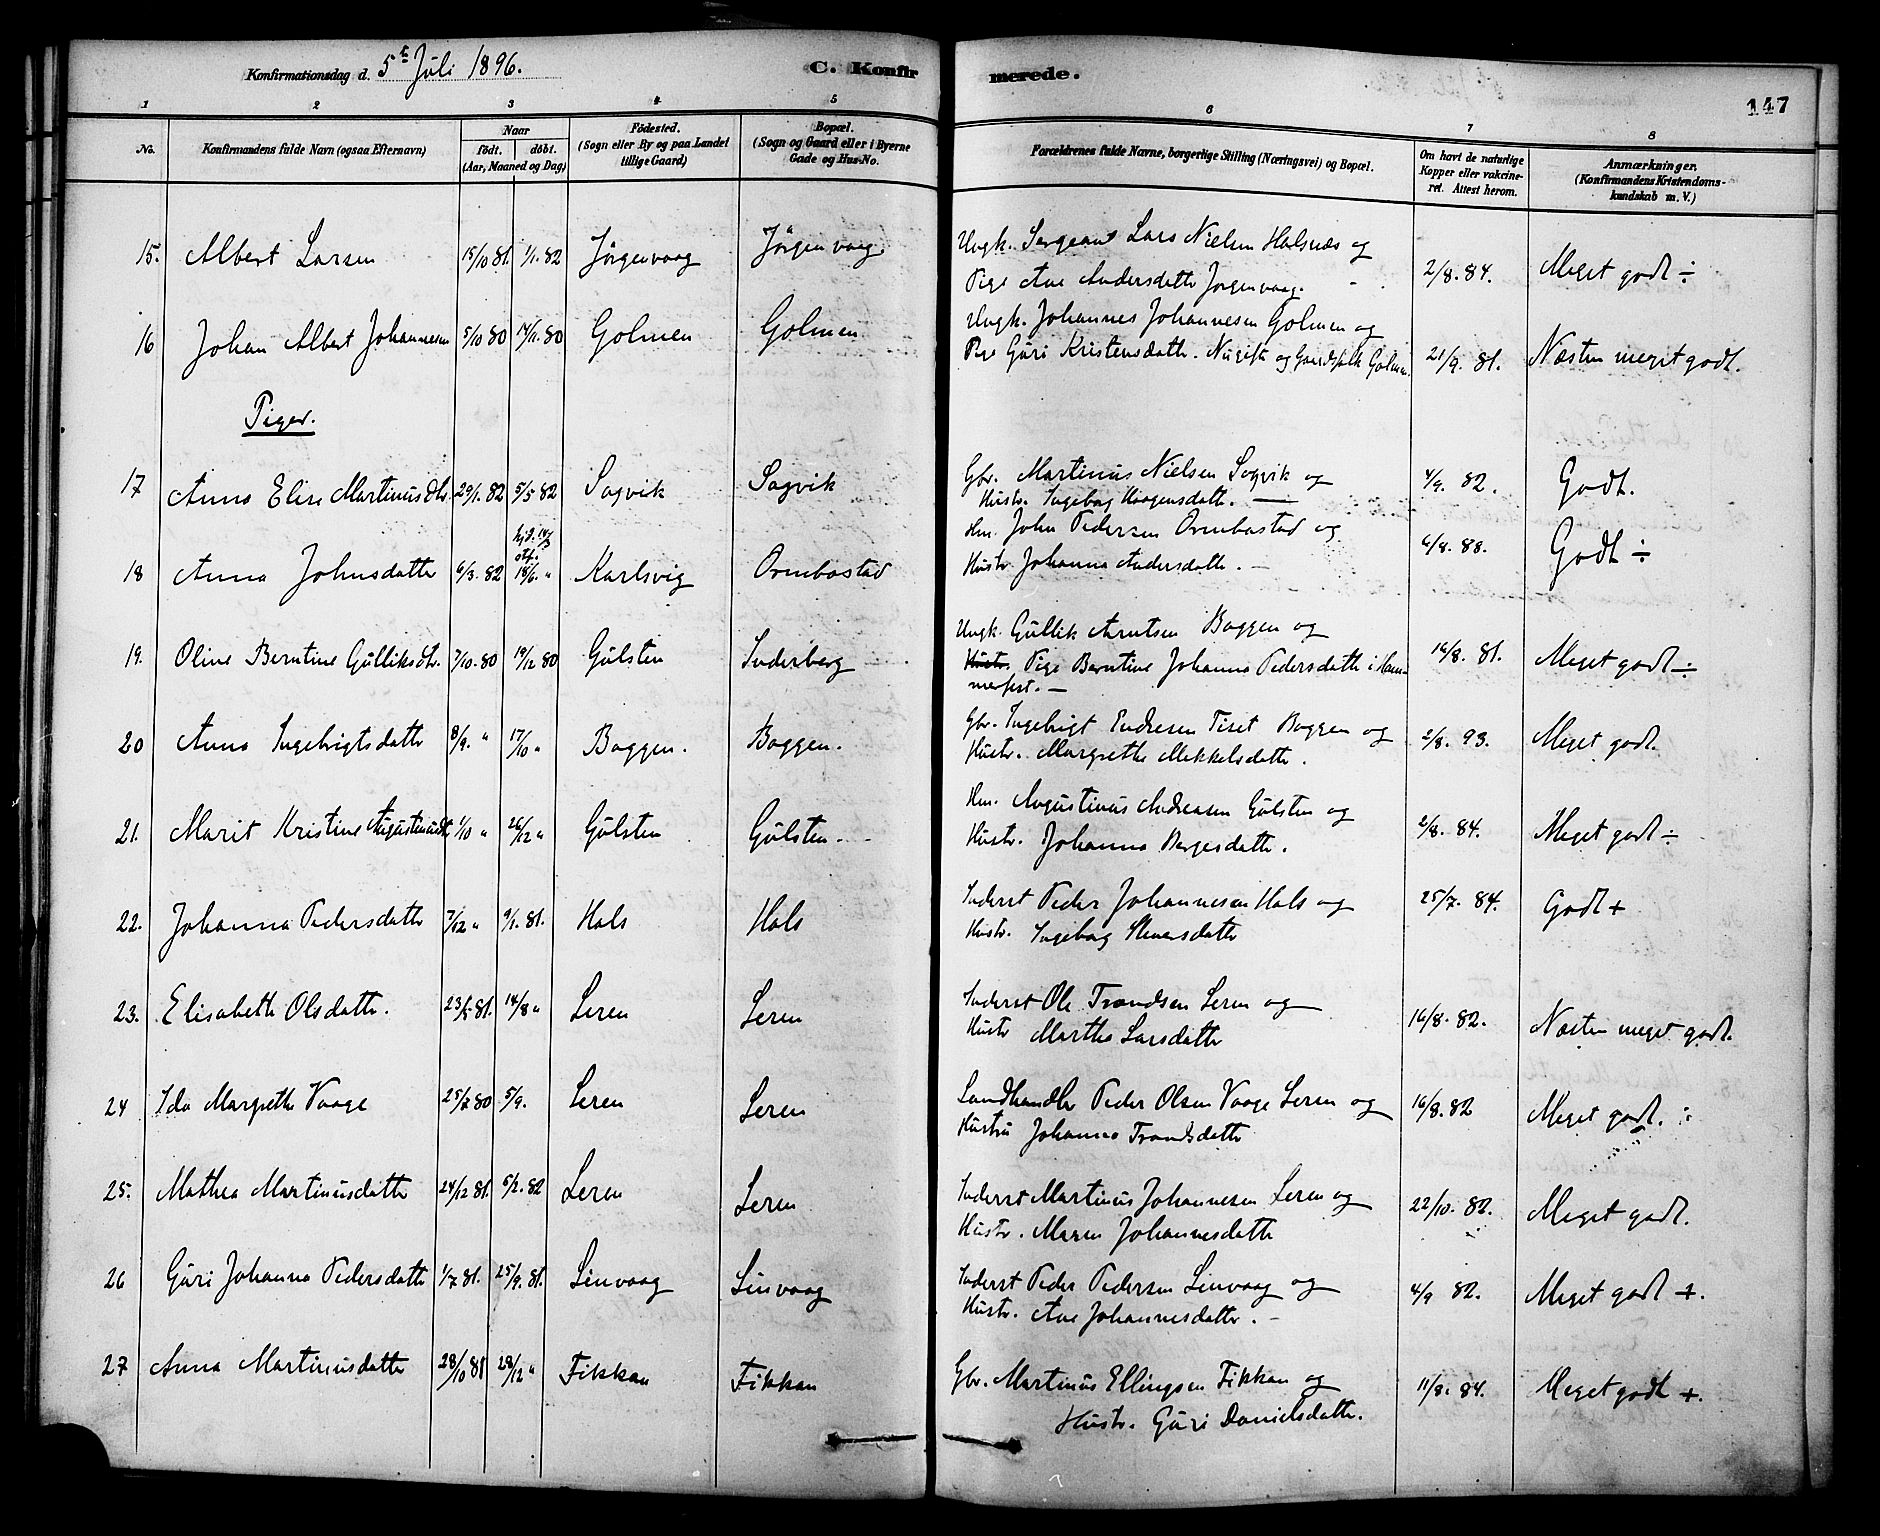 Konfirmationsdag d. 5t Juli 1896.
C. Konfir merede.
147
1 2 3 4 5 6 7 8
No.
Konfirmandens fulde Navn (ogsaa Efternavn)
Naar
født. døbt.
(Aar, Maaned og Dag)
Fødested.
(Sogn eller By og paa Landet
tillige Gaard)
Bopæl.
(Sogn og Gaard eller i Byerne
Gade og Hus-No.
Forældrenes fulde Navne, borgerlige Stilling (Næringsvei) og Bopæl.
Om havt de naturlige
Kopper eller vakcine-
ret. Attest herom.
Anmærkninger.
(Konfirmandens Kristendoms-
kundskab m. V.)
15. Albert Larsen 15/10 81. 1/1. 82 Jørgenvaag Jørgenvaag Ungk. Sergeant Lars Nielsen Halsnæs og
Pige Ane Andersdatte Jørgenvaag. 2/8. 84. Meget godt ÷
16 Johan Albert Johannesen 5/10 80 14/11. 80 Golmen Golmen Ungk. Johannes Johannesen Golmen og
Pige Guri Kristensdatte. Nu gifte og Gaardfolk Golmen. 21/9. 81. Næsten meget godt.
Piger.
17 Anna Elise Martinusdtr. 29/1. 82 5/5 82 Sagvik Sagvik Gbr. Martinus Nielsen Sagvik og
Hustr. Ingebog Haagensdatt. — 4/9. 82. Godt.
18 Anna Johnsdatte 6/3. 82 hjd. 14/3 stf. 18/6. " Karlsvig Ornbostad Hm. John Pedersen Ornbostad og
Hustr. Johanna Andersdatte. — 6/8. 88. Godt ÷
19. Oline Berntine Gulliksdtr. 7/10. 80 19/12 80 Gulsten Inderberg Ungk. Gullik Arntsen Baggen og
Hustr. Pige Berntine Johanna Pedersdatte i Ham-
merfest. — 14/8. 81. Meget godt ÷
20 Anna Ingebrigtsdatte 8/9. " 17/10 " Baggen. Baggen. Gbr. Ingebrigt Endresen Tiset Baggen og
Hustr. Margrethe Mikkelsdatte. 2/8. 93. Meget godt.
21. Marit Kristine Augustinusdtr 1/10 " 26/12 " Gulsten Gulsten. Hm. Augustinus Andreasen Gulsten og
Hustr. Johanna Børgesdatte. 2/8. 84. Meget godt ÷
22. Johanna Pedersdatte 7/12 " 9/1. 81. Hals Hals Inderst Peder Johannesen Hals og
Hustr. Ingeborg Stenersdatte 25/7. 84. Godt +
23. Elisabeth Olsdatte. 23/5 81. 14/8 " Leren Leren Inderst Ole Trondsen Leren og
Hustr Marthe Larsdatte 16/8. 82. Næsten meget godt.
24 Ida Margrethe Vaage 25/7 80 5/9. Leren Leren Landhandler Peder Olsen Vaage Leren og
Hustru Johanna Trondsdatte 16/8. 82 Meget godt. ÷
25. Mathea Martinusdatte 24/12 81. 5/2. 82 Leren Leren Inderst Martinus Johannesen Leren og
Hustr. Maren Johannesdatte 22/10. 82. Meget godt.
26 Guri Johanna Pedersdatte 1/7 81. 25/9. 81. Linvaag Linvaag Inderst Peder Pedersen Linvaag og
Hustr. Ane Johannesdatte. — 4/9 82. Meget godt +.
27 Anna Martinusdatte 28/10 81 28/12 " Fikkan Fikkan Gbr. Martinus Ellingsen Fikkan og
Hustr. Guri Danielsdatte. 11/8. 84. Meget godt +.